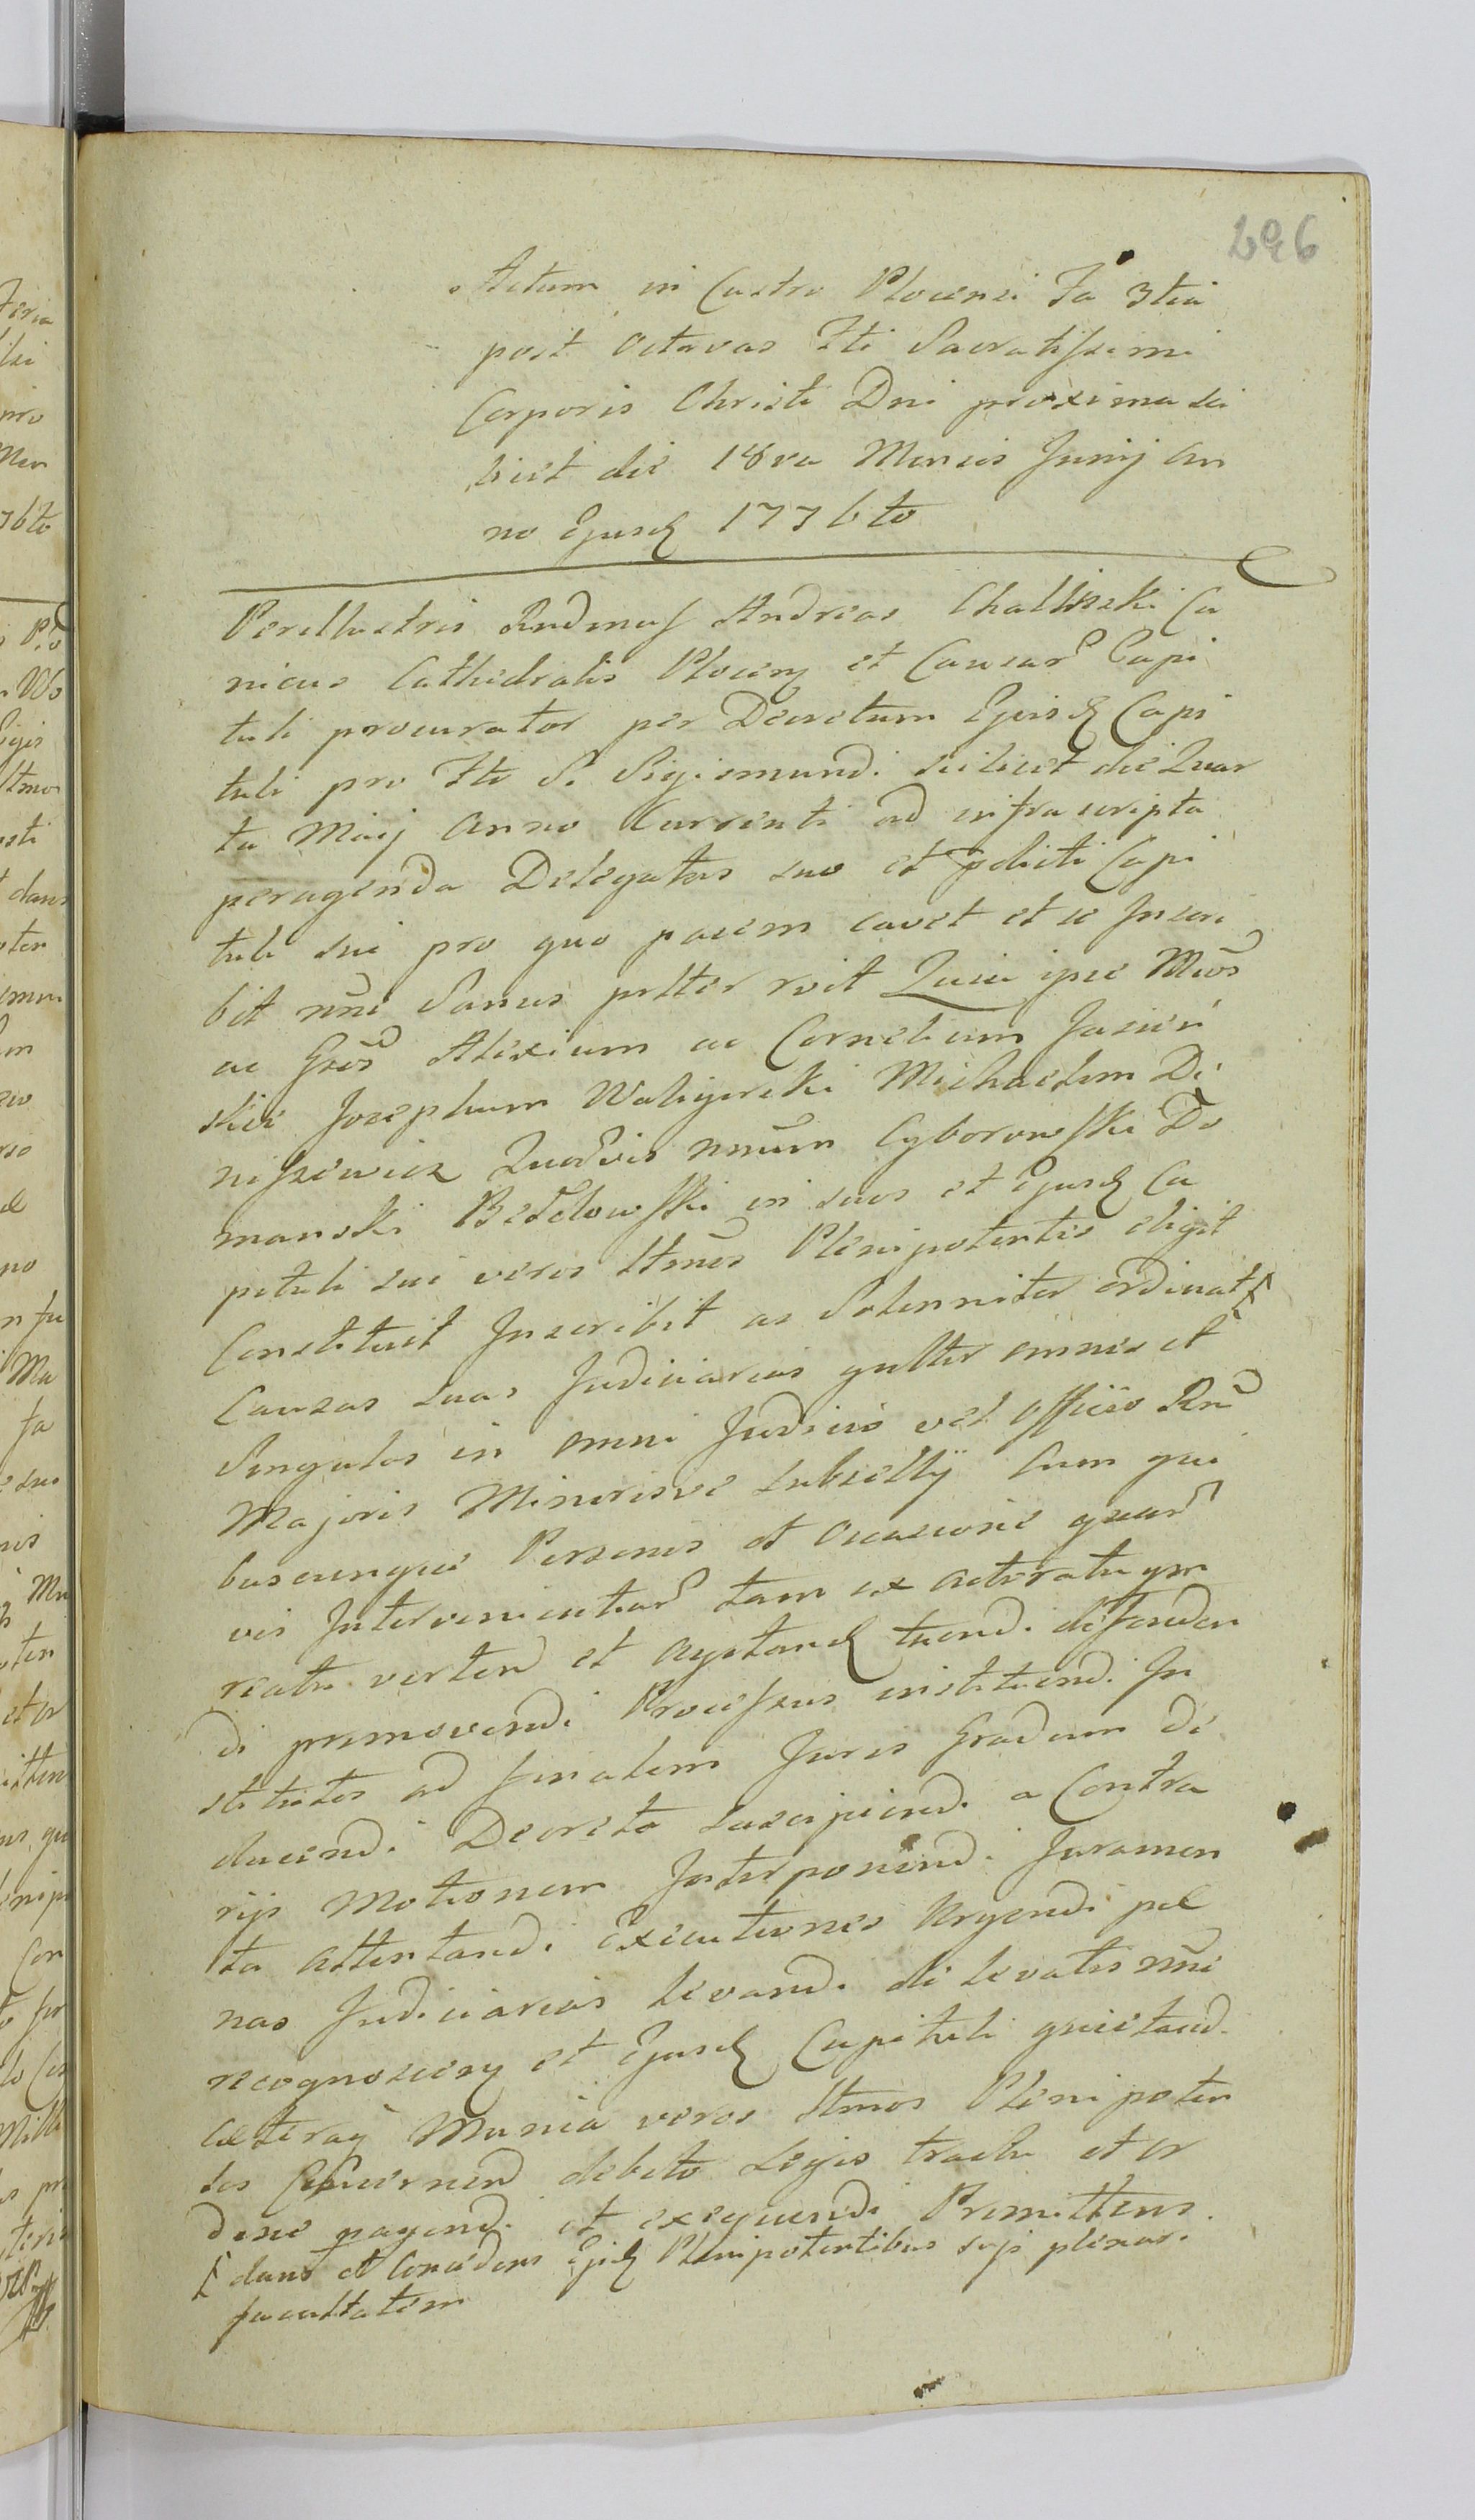 296
Actum in Castro Plocensi Fa 3tia
post octavas Fti Sacratissimi
Corporis Christi Dni proxima sci
licet die 18va Mensis Junij an
no Ejusd 1776to
Perillustris Rndmus Andreas Challinski Ca
nicus Cathedralis Plocen et Causar Capi
tuli procurator per Decretum Ejusd Capi
tuli pro Fto S. Sigismundi scilicet die Quar
ta Maij Anno Currenti ad infrascripta
peragenda Delegatus suo et pdicti Capi
tuli sui pro quo pacem cavet et se Inscri
bit nne Sanus pltter rvit Quia ipse Mcos
ac Gsos Alexium ac Cornelium Jasień
skie Josephum Waligurski Michaelem De
niszewicz Quosvis nnum Cyborowski Do
manski Bedelowski in suos et Ejusd Ca
pituli sui veros Ltmos Plenipotentes eligit
Constituit Inscribit ac Solenniter ordinat
Causas suas Judiciarias gnlter omnes et
Singulas in omni Judicio vel officio Rni
Majoris Minorisve subsellij Cum qui
buscunque Personis et occasione quar
vis Intervenientiar tam ex actoratu qm
reatu verten et agitand tuendi defenden
di promovendi Processus instituendi In
stitutos ad finalem Juris Gradum de
ducendi Decreta suscipiendi a Contra
rijs Motionem Interponendi Juramen
ta attentandi Executiones Urgendi poe
nas Judiciarias levandi de levatis nne
recognoscen et Ejusd Capituli quietand
Munia veros Ltmos Plenipoten
tes debito Legis tractu et or
dine pagendi et exequendi Promittens.
dans et Concedens Ejsd Plenipotentibus suis plenar.
facultatem